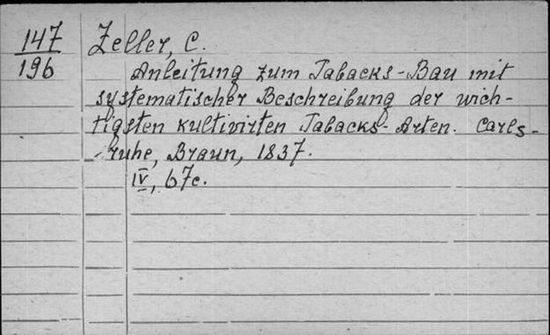 147
196
Zeller, C.
Anleitung zum Tabacks-Bau mit
systematischer Beschreibung der wich-
tigsten kultivirten Tabacks-Arten. Carls-
ruhe, Braun, 1837.
IV, 67c.